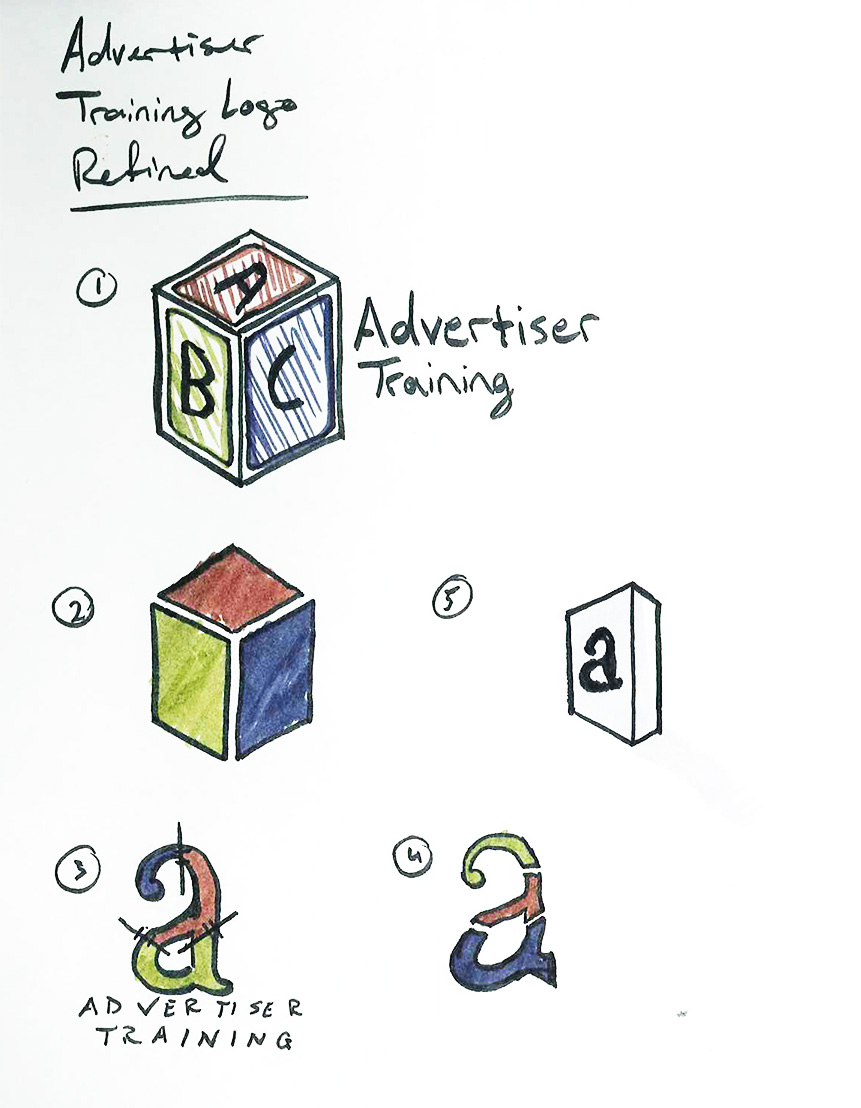 Advertiser
Training Logo
Refined
1
A
B C
Advertiser
Training
2
5
a
3
a
4
a
ADVERTISER
TRAINING